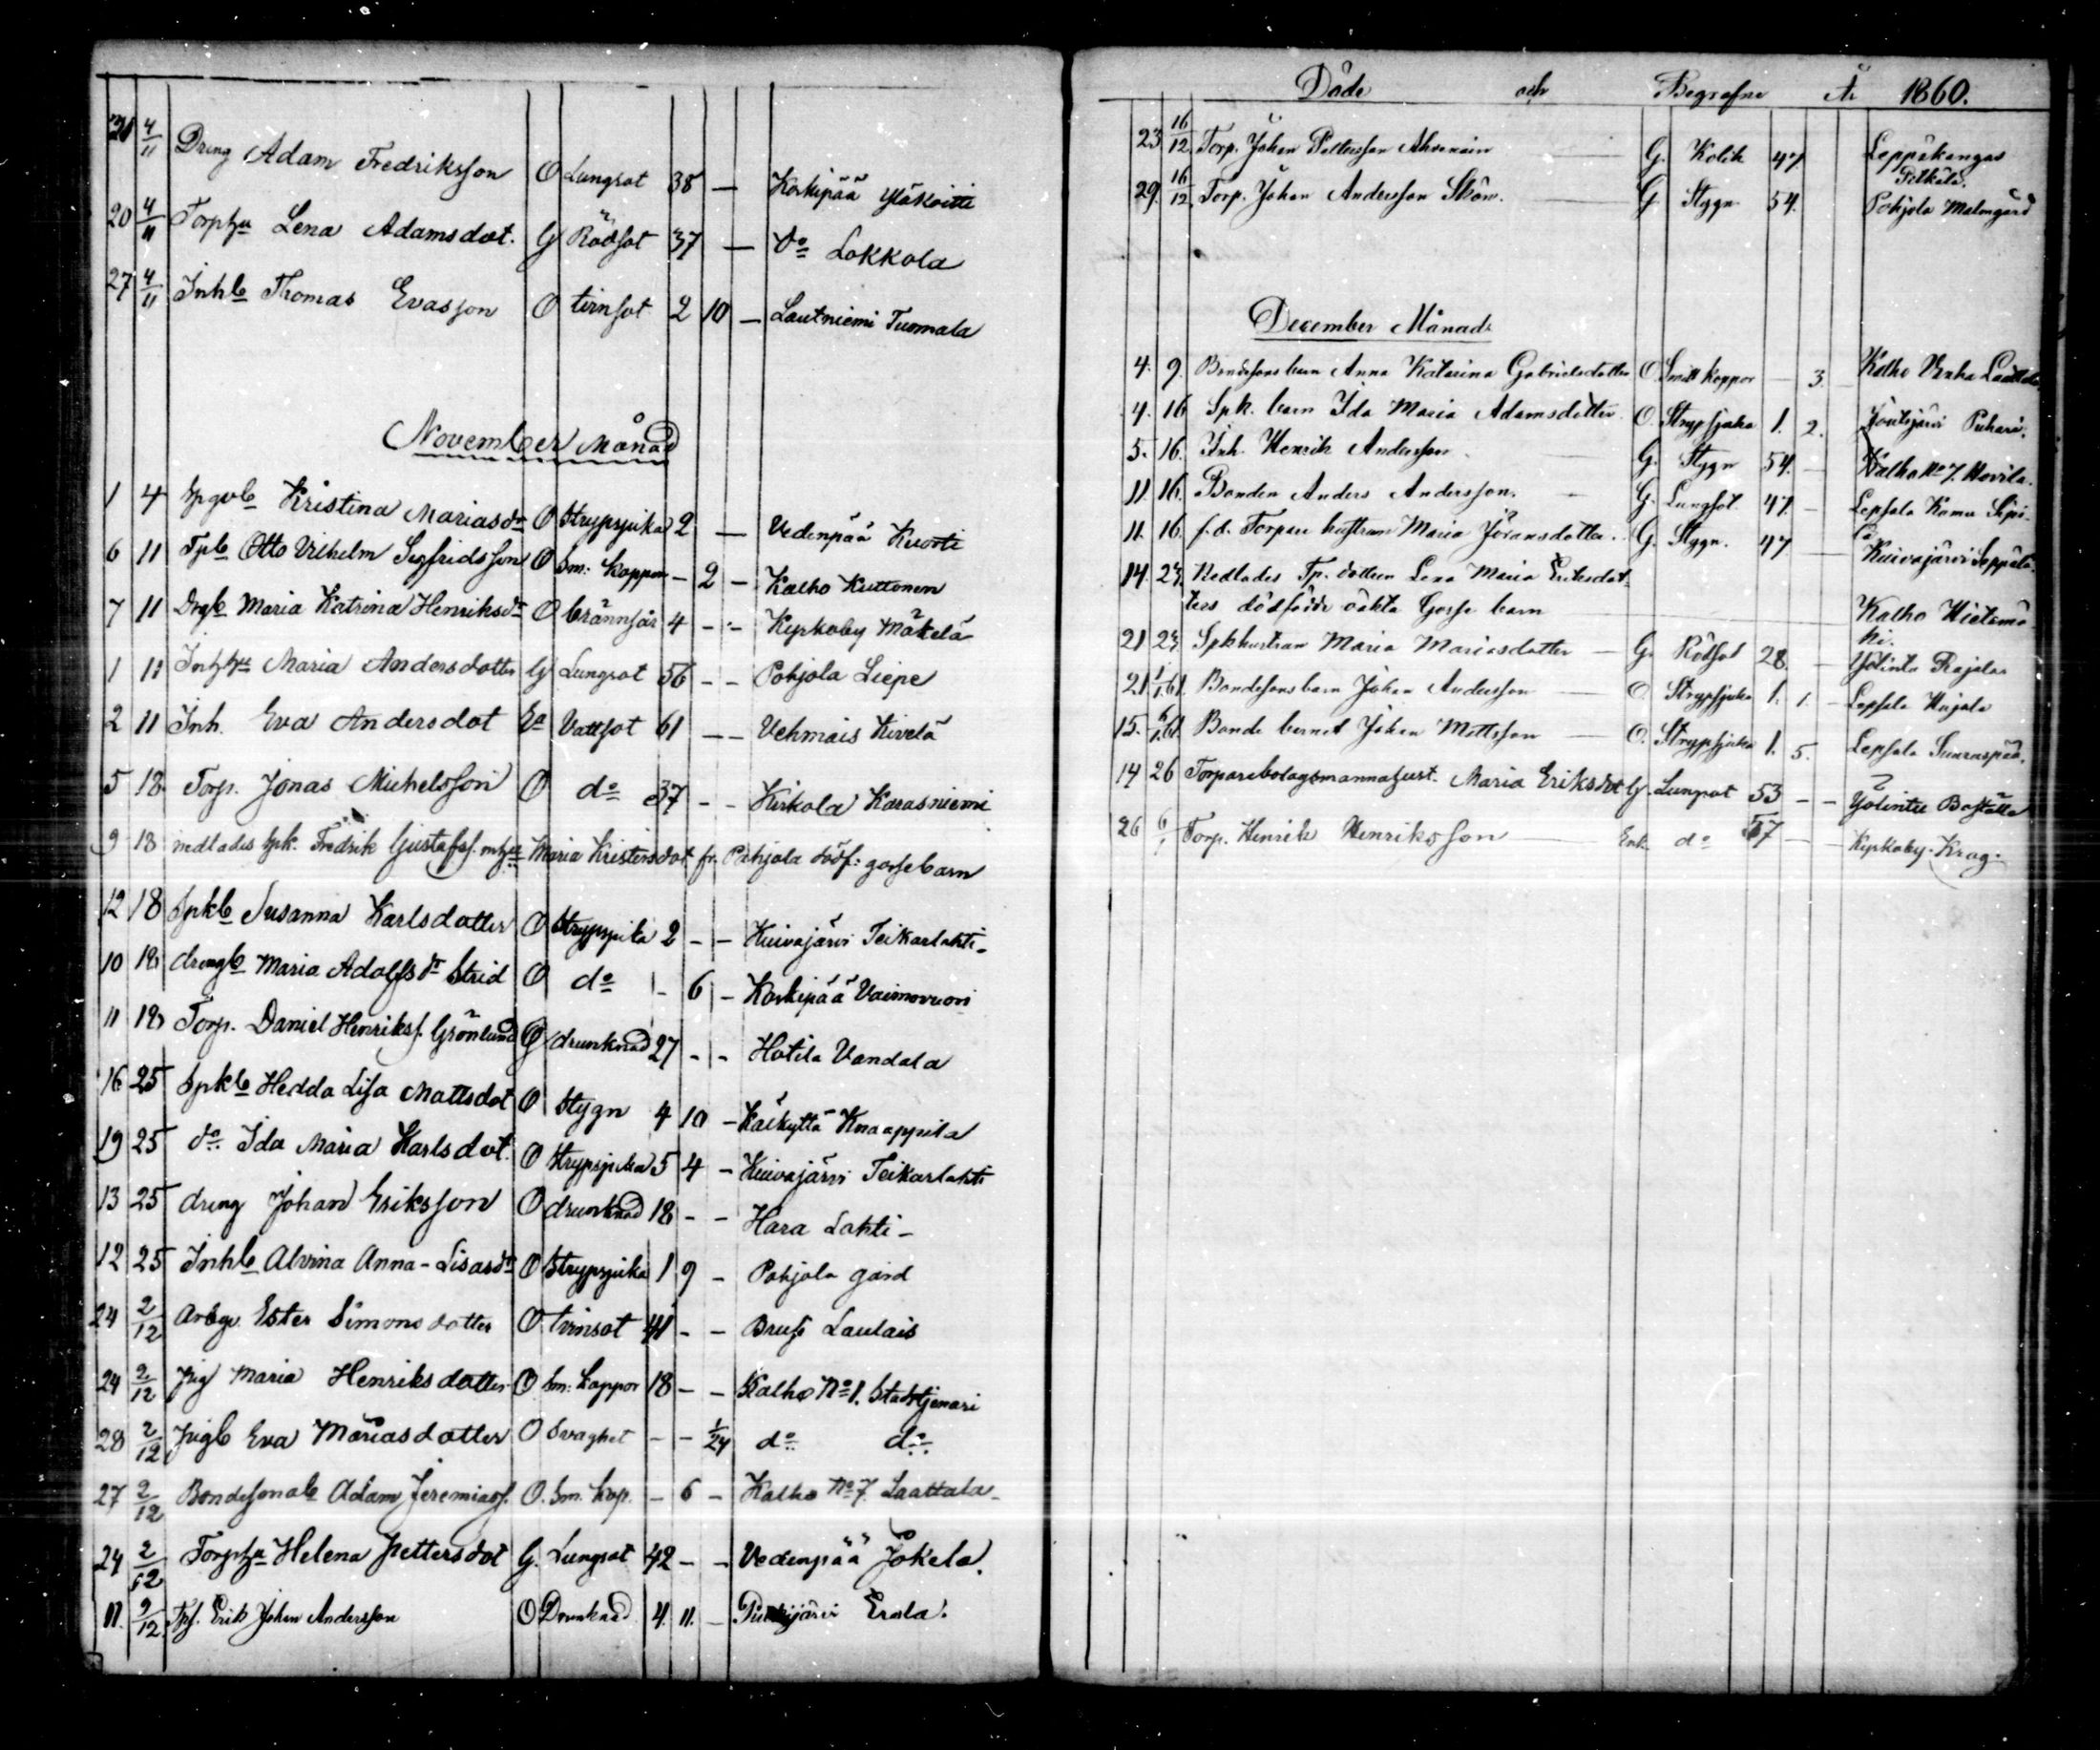 31 4/11 Dreng Adam Fredriksson O Lungsot 38 — Korkipää Yläkoitti
20 4/11 Torphu Lena Adamsdot. G Rödsot 37 — do Lokkola
27 4/11 Inhb Thomas Evasson O tvinsot 2 10 — Lautniemi Tuomala
November Månad
1 4 Kristina Mariasdr O Strypsjuka 2 — Vedenpää
6 11 Tplb Otto Vilhelm Segfridsson O Sm: koppor – 2 – Kalho Kuttonen
7 11 Drgb Maria Katrina Henriksdr O brännsår 4 – – Kyrkoby Mäkelä
1 11 Inhhu Maria Andersdotter G Lungsot 56 – – Pohjola Liepe
2 11 Inh. Eva Andersdot Ea Vattsot 61 — — Vehmais Kivelä
5 18 Torp. Jonas Michelsson O do 37 – – Kirkola Karasniemi
9 18 inedlades spk. Fredrik Gustafss. mhu Maria Kristersdot fr. Pohjola dödf: gossebarn
12 18 Spkb Susanna Karlsdotter O Strypsjuka 2 – – Kuivajärvi Teikarlahti –
10 18 drengb Maria Adolfsdr Strid O do – 6 – Korkipää Vaimovuori
11 18 Torp. Daniel Henrikss. Grönlund G drunknad 27 – – Hatila Vandala
16 25 Spkb Hedda Lisa Mattsdot O Stygn 4 10 – Käikyttä Knaappila
19 25 do Ida Maria Karlsdot. O Strypsjuka 5 4 – Kuivajärvi Teikarlahti
13 25 dreng Johan Eriksson O drunknad 18 – – Hara Lahti –
12 25 Inhb Alvina Anna-Lisasdr O Strypsjuka 1 9 – Pohjola gård
24 2/12 Ester Simonsdotter O tvinsot 41 – – Brusi Laulais
24 2/12 Pig Maria Henriksdotter O Sm: koppor 18 – – Kalho No 1.
28 2/12 Pigb Eva Mariasdotter O Svaghet – – 1/24 do do
27 2/12 Bondesonab Adam Jeremiass. O. Sm. kop. – 6 – Kalho No 7. Laattala –
24 2/12 Torphu Helena Pettersdot G. Lungsot 42 – – Vedenpää Jokela.
11. 9/12. Erik Johan Andersson O Drunknad 4. 11. – Erola.
Döde och Begrafne År 1860.
23 16/12 Torp. Johan Pettersson Ahvenain G. Kolik 47 Leppäkangas
29. 16/12 Torp. Johan Andersson Ström. G Stygn 54. Pohjola Malmgård
December Månad:
4. 9. Bondesons barn Anna Katarina Gabrielsdotter O. Smitt koppor — 3. Kalho Laattala
4. 16 Spk. barn Ida Maria Adamsdotter. O. Strypsjuka 1. 2.
5. 16. Inh. Henrik Andersson G. Stygn 54. — Kalho No 7. Hovila.
11. 16. Bonden Anders Andersson. G. Lungsot. 47. — Lepsala
11. 16. f.d. Torpare hustrun Maria Göransdotter. G. Stygn. 47 — Kuivajärvi Seppälä.
14. 24. Nedlades Tp. dottren Lena Maria Eriksdot
ters dödfödde oäkta Gosse barn Kalho Hietamä
ki.
21 24. Spkhustrun Maria Mariasdotter — G. Rödsot 28. — Rajalax
21 1/1.61. Bondesonsbarn Johan Andersson — O. Strypsjuka 1. 1. – Lepsala Kujala
15. 6/1.61. Bonde barnet Johan Mattsson — O. Strypsjuka 1. 5. Lepsala
14 26 Maria Eriksdot G. Lungsot 53 – –
26 6/1 Torp. Henrik Henriksson — Enk. do 57 — Kyrkoby Krog.